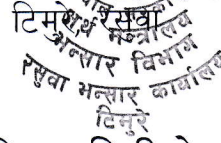 टिमुरे रसुवा
अर्थ मन्त्रालय
भन्सार विभाग
रसुवा भन्सार कार्यालय
टिमुरे